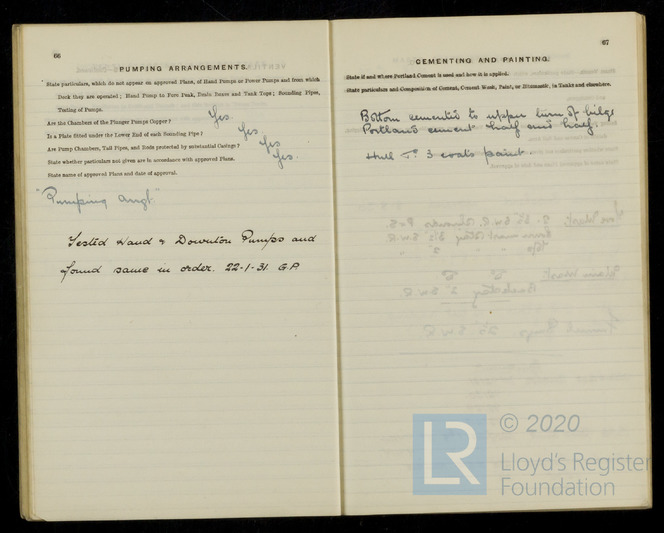 66
PUMPING ARRANGEMENTS.
State particulars, which do not appear on approved Plans, of Hand Pumps or Power Pumps and from which
Deck they are operated; Hand Pump to Fore Peak, Deals Boxes and Tank Tops; Sounding Pipes,
Testing of Pumps.
Are the Chambers of the Plunger Pumps Copper? Yes.
Is a Plate fitted under the Lower End of each Sounding Pipe? Yes
Are Pump Chambers, Tail Pipes, and Rods protected by substantial Casings? Yes
State whether particulars not given are in accordance with approved Plans. Yes.
State name of approved Plans and date of approval.
"Pumping Angt."
Tested Hand & Downton Pumps and
found same in order. 22-1-31. G.P.
67
CEMENTING AND PAINTING.
State if and where Portland Cement is used and how it is applied.
State particulars and Composition of Cement, Cement Wash, Paint, or Bitumastic, in Tanks and elsewhere.
Bottom cemented to upper turn of bilge
Portland cement half and half.
Hull 3 coats paint.
LR
© 2020
Lloyd's Register
Foundation